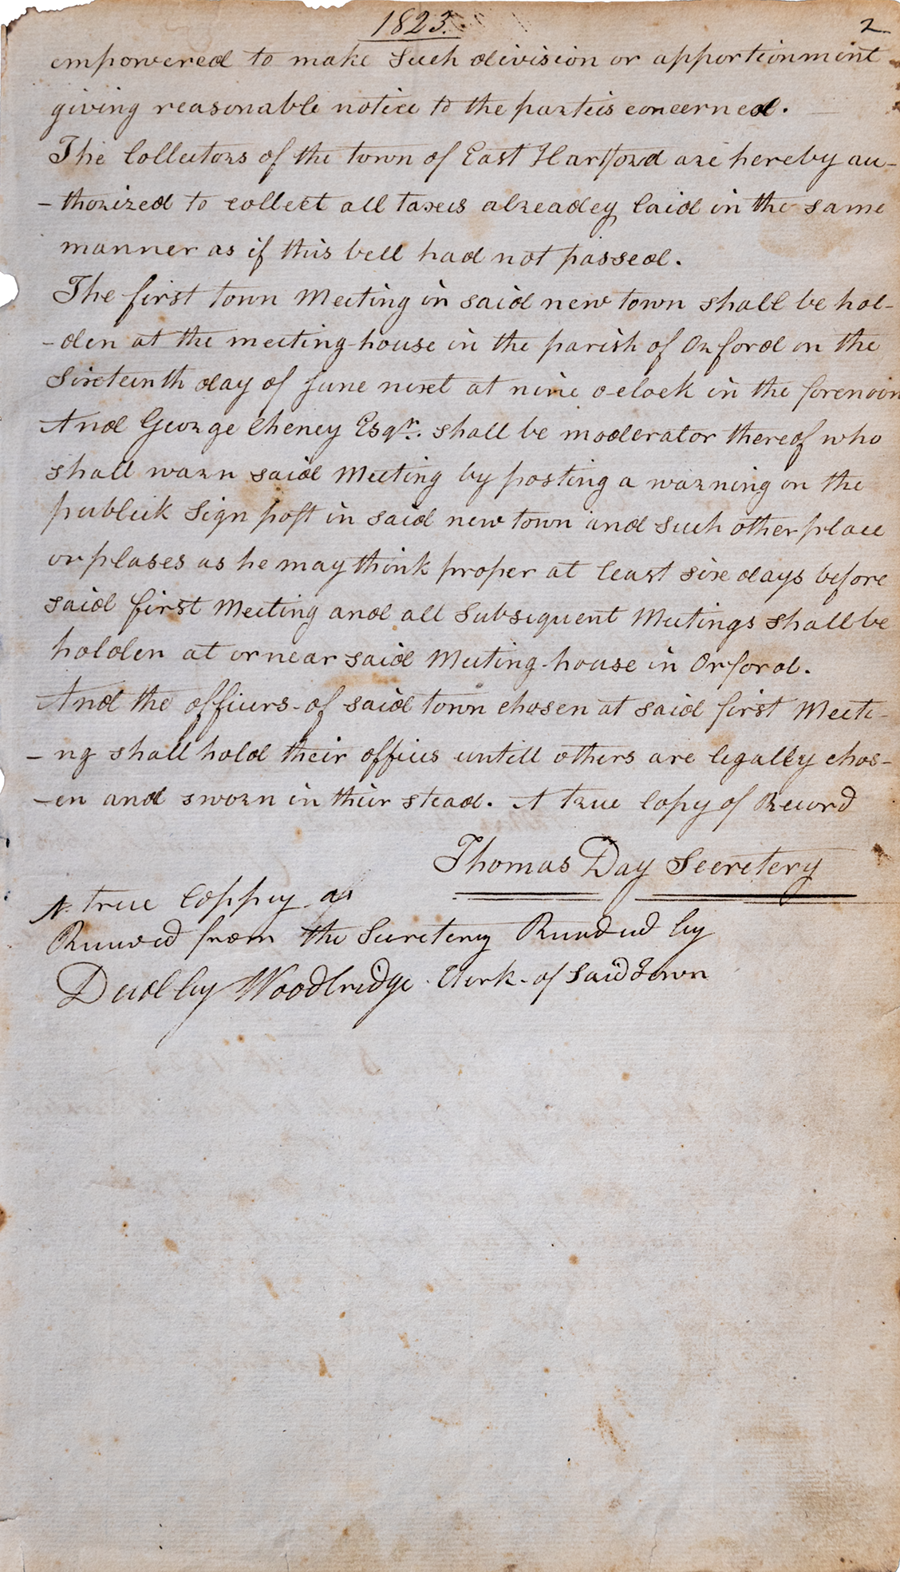 1823.
2
empowered to make Such division or apportionment
giving reasonable notice to the parteis concerned.
The Collectors of the town of East Hartford are hereby au-
-thorized to collect all taxes alreadey laid in the same
manner as if this bell had not passed.
The first town Meeting in said new town shall be hol-
-den at the meeting-house in the parish of Orford on the
Sixteinth day of June next at nine o-clock in the forenoon
And George Cheney Esqr. shall be moderator thereof who
shall warn said Meeting by posting a warning on the
publick Sign post in said new town and such other place
or plases as he may think proper at least six days before
said first Meeting and all Subsequent Meetings shall be
holden at or near said Meeting-house in Orford.
And the officers-of said town chosen at said first Meeti-
-ng shall hold their offices untill others are legally chos-
-en and sworn in their stead. A true Copy of Record
Thomas Day Secretery
A true Coppey as
Received from the Secretery Recorded by
Dudley Woodbridge Clerk of Said Town